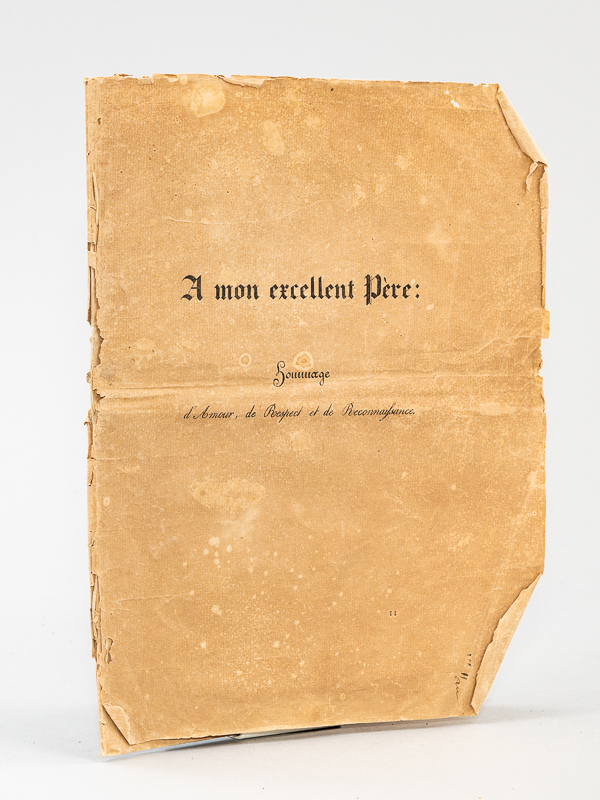 A mon excellent Père:
Hommage
d'Amour, de Respect et de Reconnaiſsance.